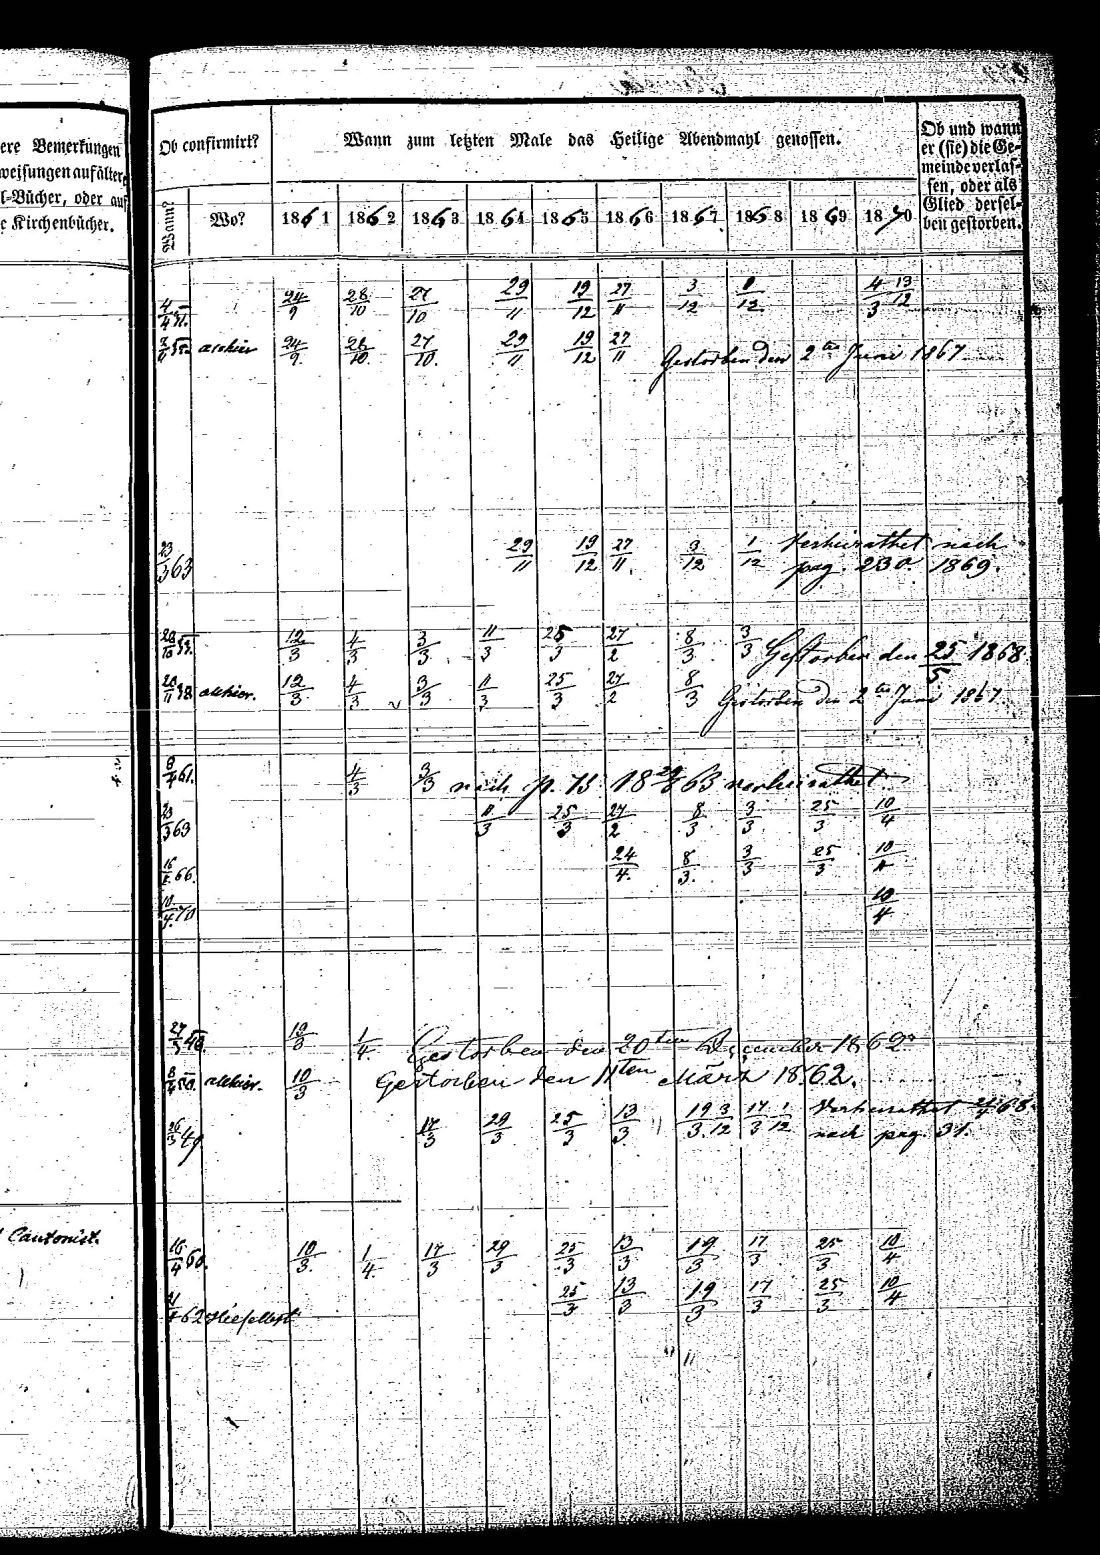 ere Bemerkungen
weisungen auf älter
l-Bücher, oder auf
e Kirchenbücher.
Ob confirmirt?
Wann?
Wo?
Wann zum letzten Male das Heilige Abendmahl genossen.
1861 1862 1863 1864 1865 1866 1867 1868 1869 1870
Ob und wann
er (sie) die Ge-
meinde verlas-
sen, oder als
Glied dersel-
ben gestorben.
24/9 28/10 27/10 29/11 19/12 27/11 3/12 1/12 4/3 13/12
24/9 28/10. 27/10. 29/11 19/12 27/11 Gestorben den 2ten Juni 1867.
23/3 63 29/11 19/12 27/11. 3/12 1/12 Verheirathet nach
pag. 230 1869.
12/3 4/3 3/3. 11/3 25/3 27/2 8/3 3/3 Gestorben den 25/5 1868.
allhier. 12/3 4/3 3/3 11/3 25/3 27/2 8/3 Gestorben den 2ten Juni 1867.
8/4 61. 4/3 3/3 nach p. 75 1863 verheirathet
23/3 63 11/3 25/3 27/2 8/3 3/3 25/3 10/4
66. 24/4. 8/3. 3/3 25/3 10/4
10/4. 70 10/4
1/4 Gestorben den 20ten December 1862.
allhier. 10/3 Gestorben den 11ten März 1862.
26/3 49. 17/3 29/3 25/3 13/3 19/3. 3/12 17/3 1/12 Verheirathet 68.
nach pag. 31.
Cantonist.
16/4 60. 10/3. 1/4. 17/3 29/3 25/3 13/3 19/3 17/3 25/3 10/4
62 Hieselbst 25/3 13/3 19/3 17/3 25/3 10/4